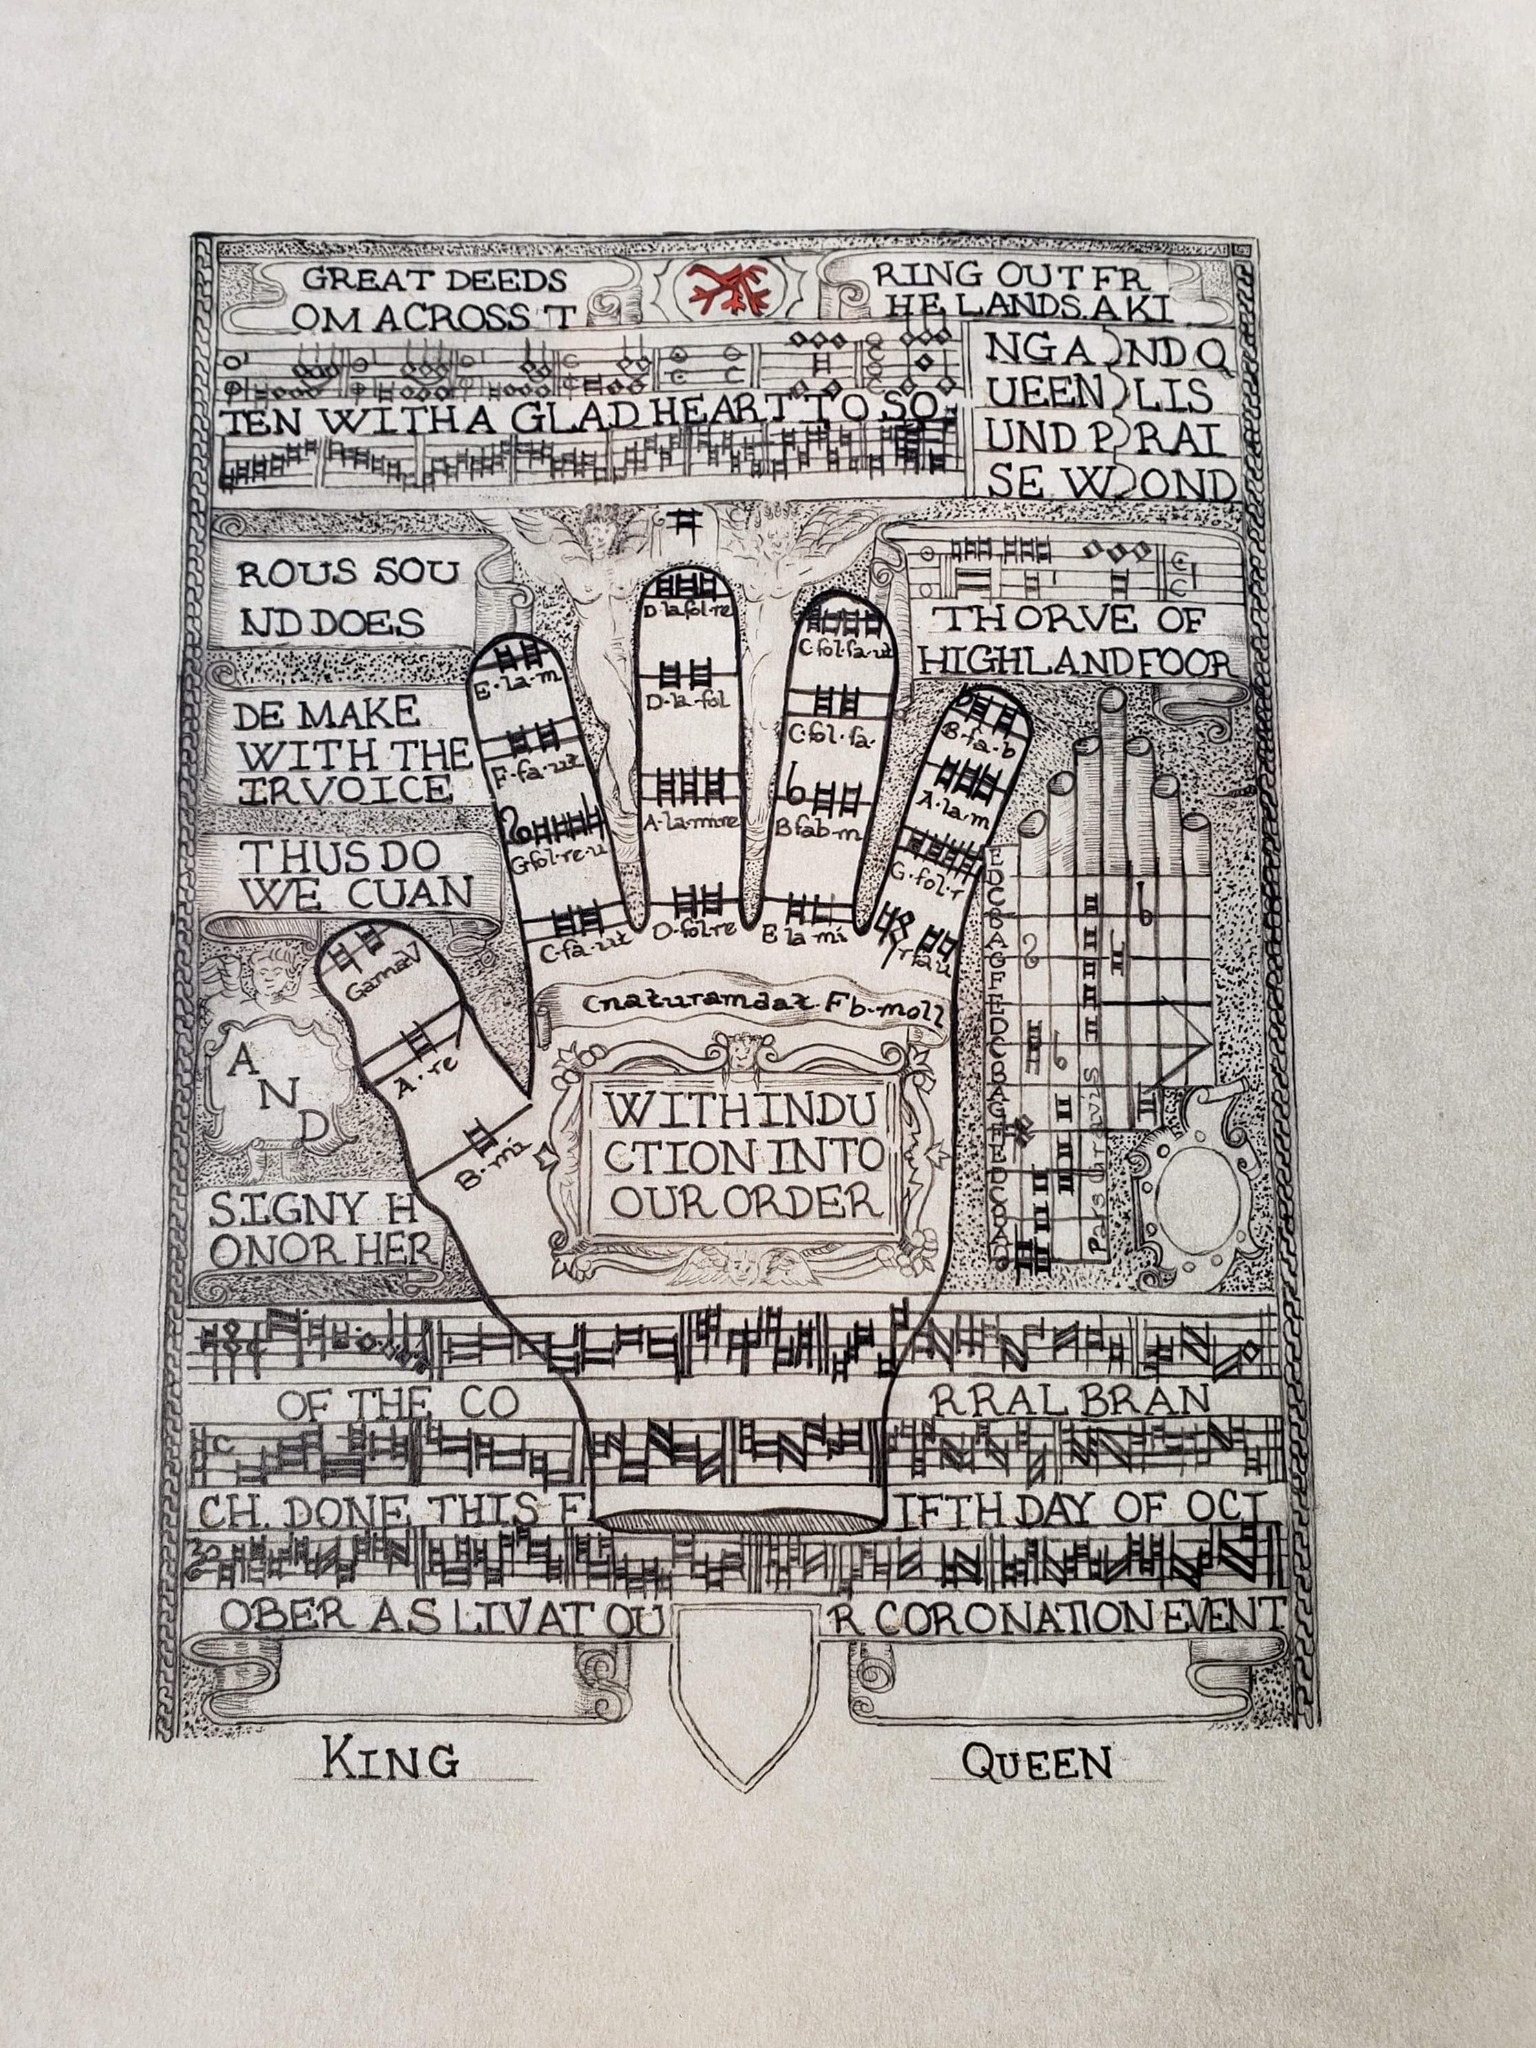 GREAT DEEDS
RING OUT FR
OM ACROSS T
HE LANDS. A KI
NG A ND Q
UEEN LIS
TEN WITH A GLAD HEART TO SO
UND P RAI
SE W OND
ROUS SOU
ND DOES
TH ORVE OF
HIGHLAND FOOR
DE MAKE
WITH THE
IR VOICE
THUS DO
WE CUAN
AND
SIGNY H
ONOR HER
E·la·m
F·fa·ut
G·fol·re·u
C·fa·ut
D·la·fol·re
D·la·fol
A·la·mi·re
D·fol·re
C·fol·fa·ut
C·fol·fa·
B·fab·m
E la mi
B·fa·b
A·la·m
G·fol·r
GamaV
A·re
B·mi
Cnaturamdat. F b·moll
WITH INDU
CTION INTO
OUR ORDER
E
D
C
B
A
G
F
E
D
C
B
A
G
F
E
D
C
B
A
G
Pars Gravis
OF THE CO
RRAL BRAN
CH. DONE THIS F
IFTH DAY OF OCT
OBER AS LIV AT OU
R CORONATION EVENT
KING
QUEEN